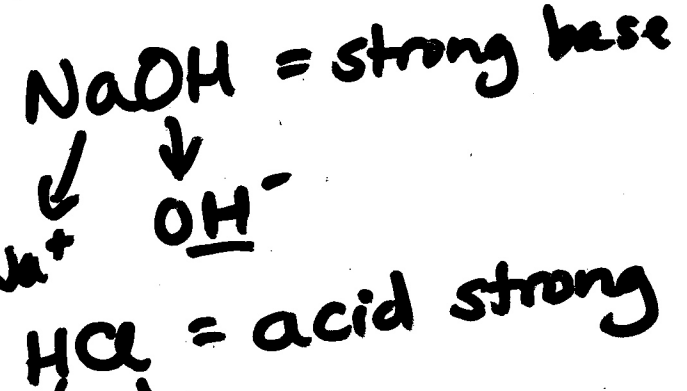 NaOH = strong base
Na⁺ OH⁻
HCl = acid strong